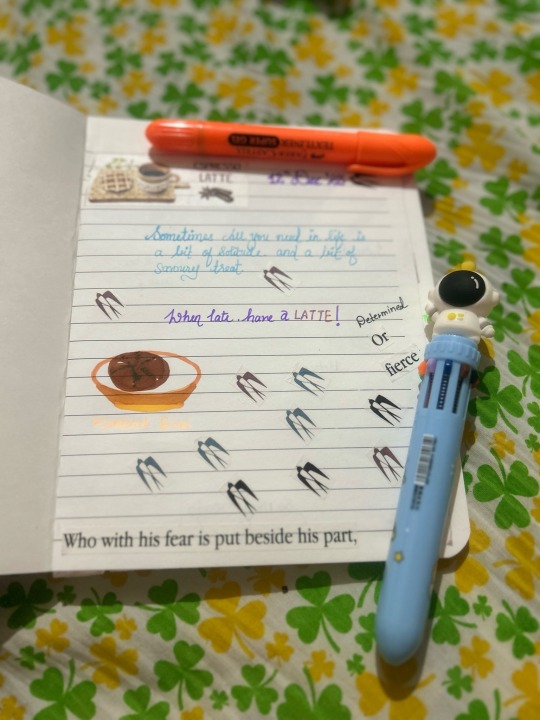 TEXTLINER SUPER GEL
ESPRESSO
LATTE
12th Dec
Sometimes all you need in life is
a bit of solitude and a bit of
savoury treat
When late, have a LATTE!
Determined
Or
fierce
Who with his fear is put beside his part,